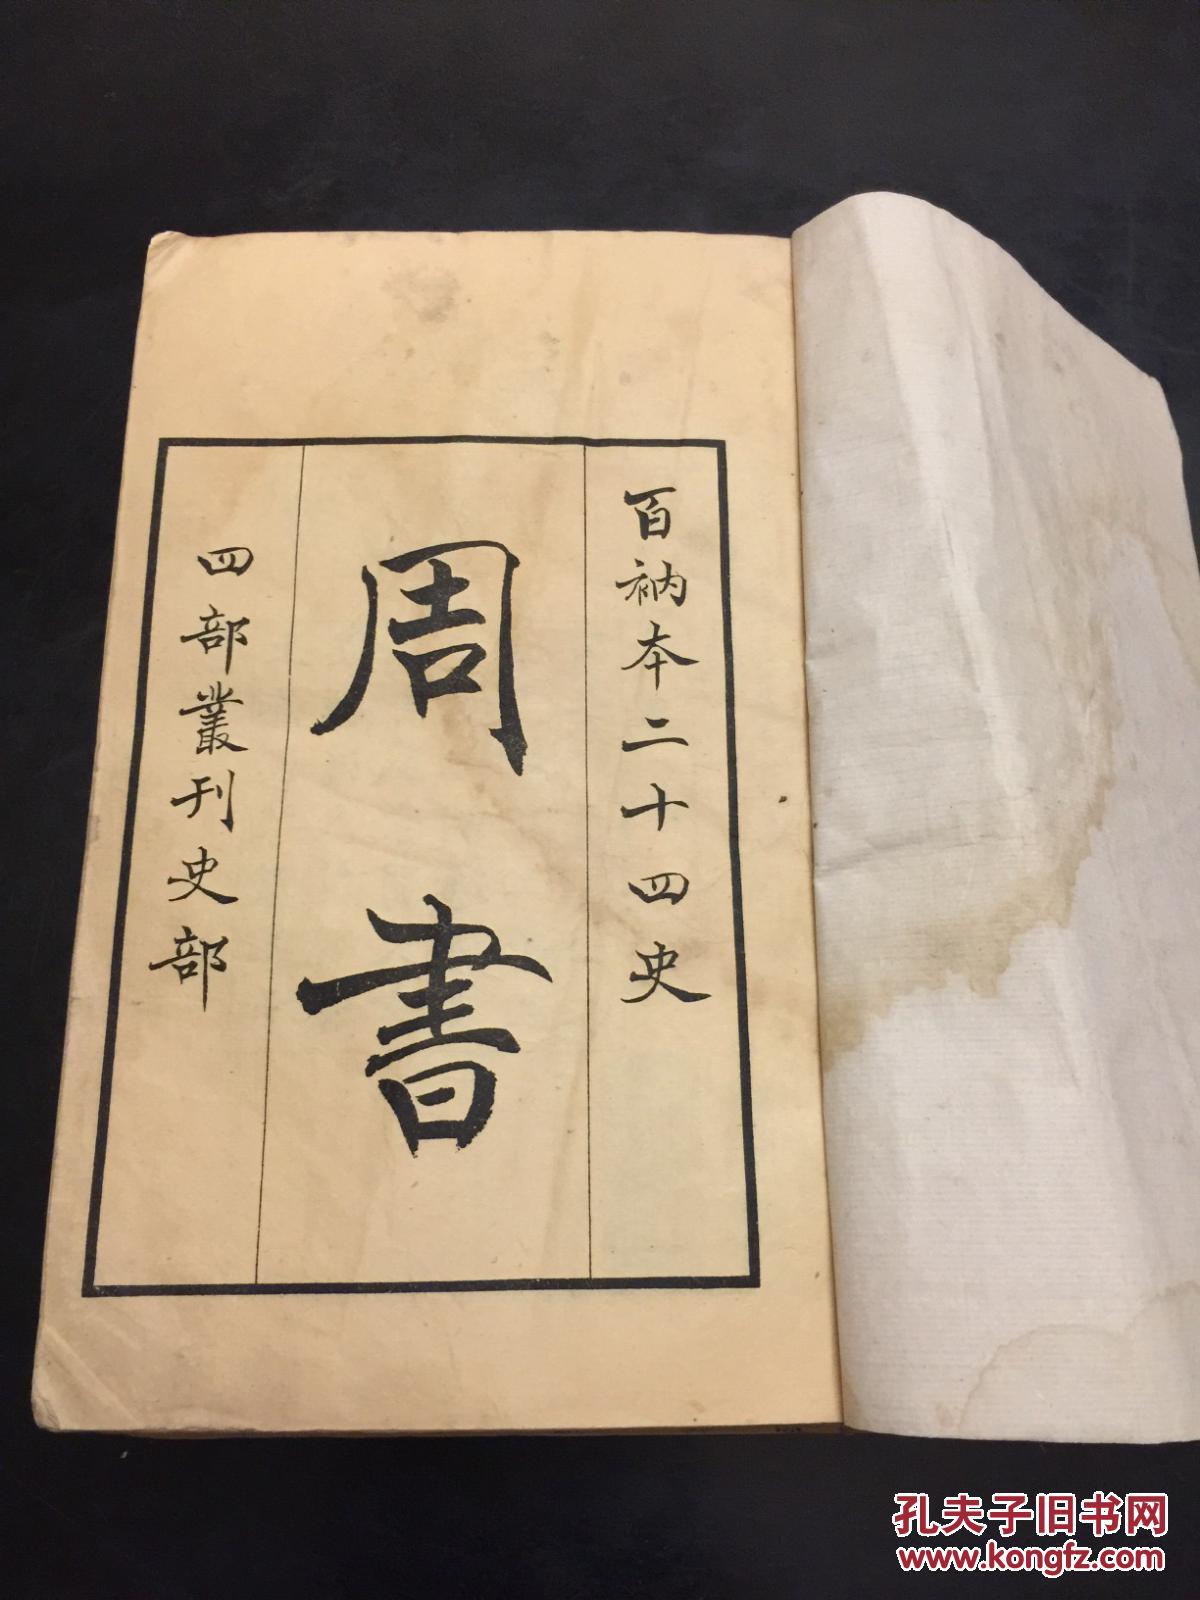 百衲本二十四史
周書
四部叢刊史部
孔夫子旧书网
www.kongfz.com